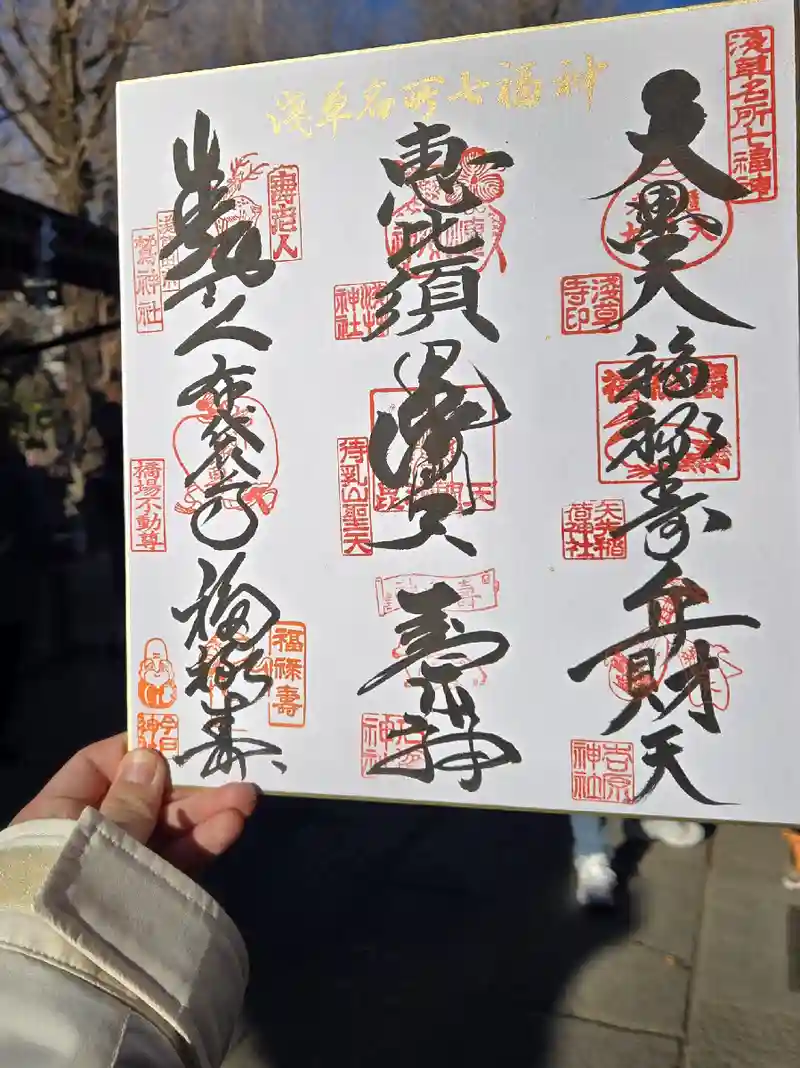 浅草名所七福神
淺草名所七福神
大黒天
淺草寺印
福禄寿
矢先稲荷神社
弁財天
吉原神社
恵比須
浅草神社
待乳山聖天
寿老神
石浜神社
壽老人
寿老人
鷲神社
布袋尊
橋場不動尊
福禄寿
福禄壽
今戸神社